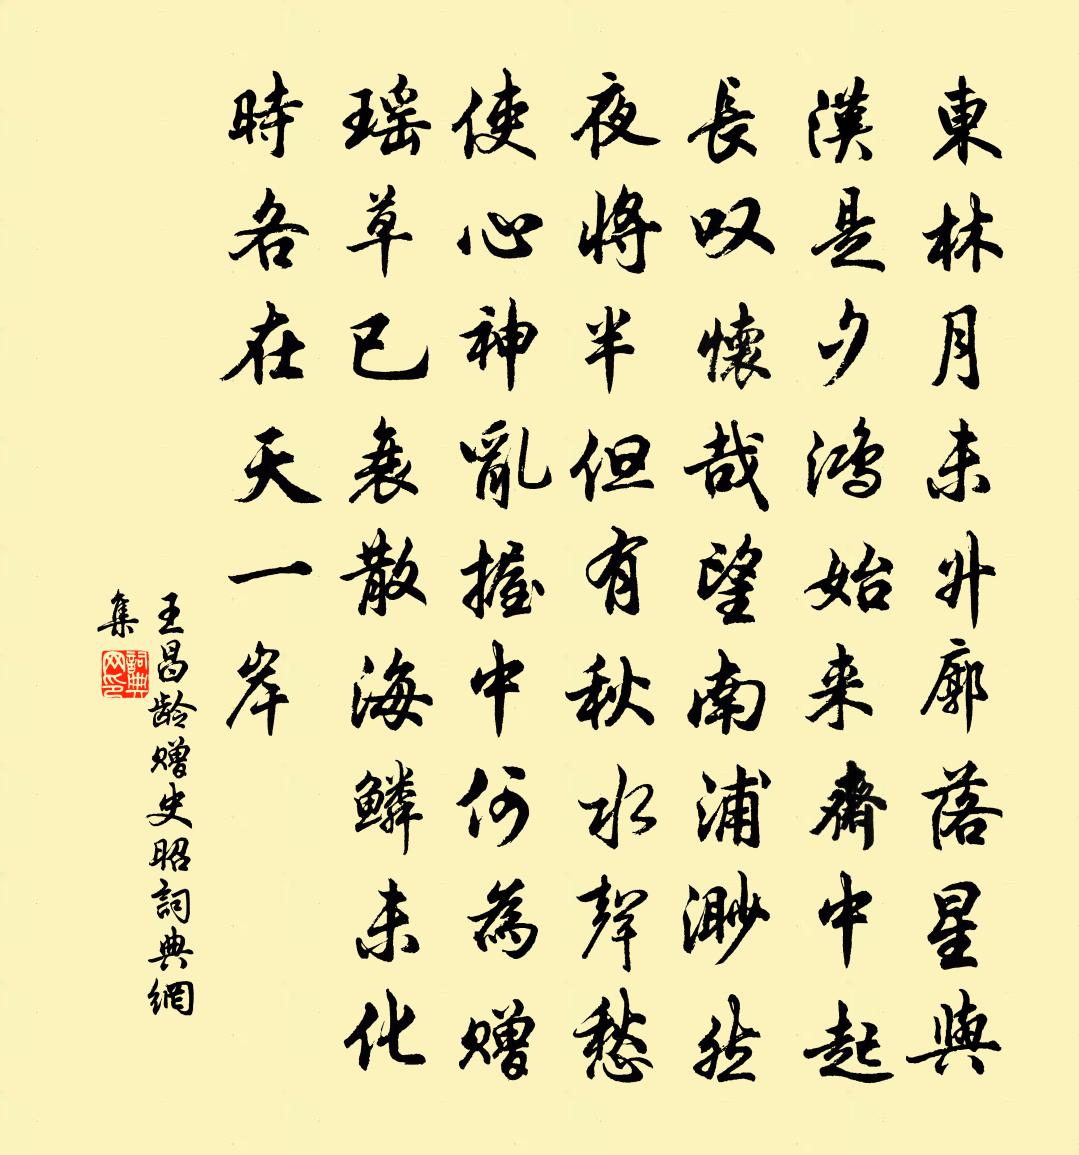 東林月未升廓落星與
漢是夕鴻始来齋中起
長叹懷哉望南浦渺然
夜將半但有秋水聲愁
使心神亂握中何為贈
瑶草已衰散海鱗未化
時各在天一岸
王昌龄赠史昭詞典網
集
詞典網印